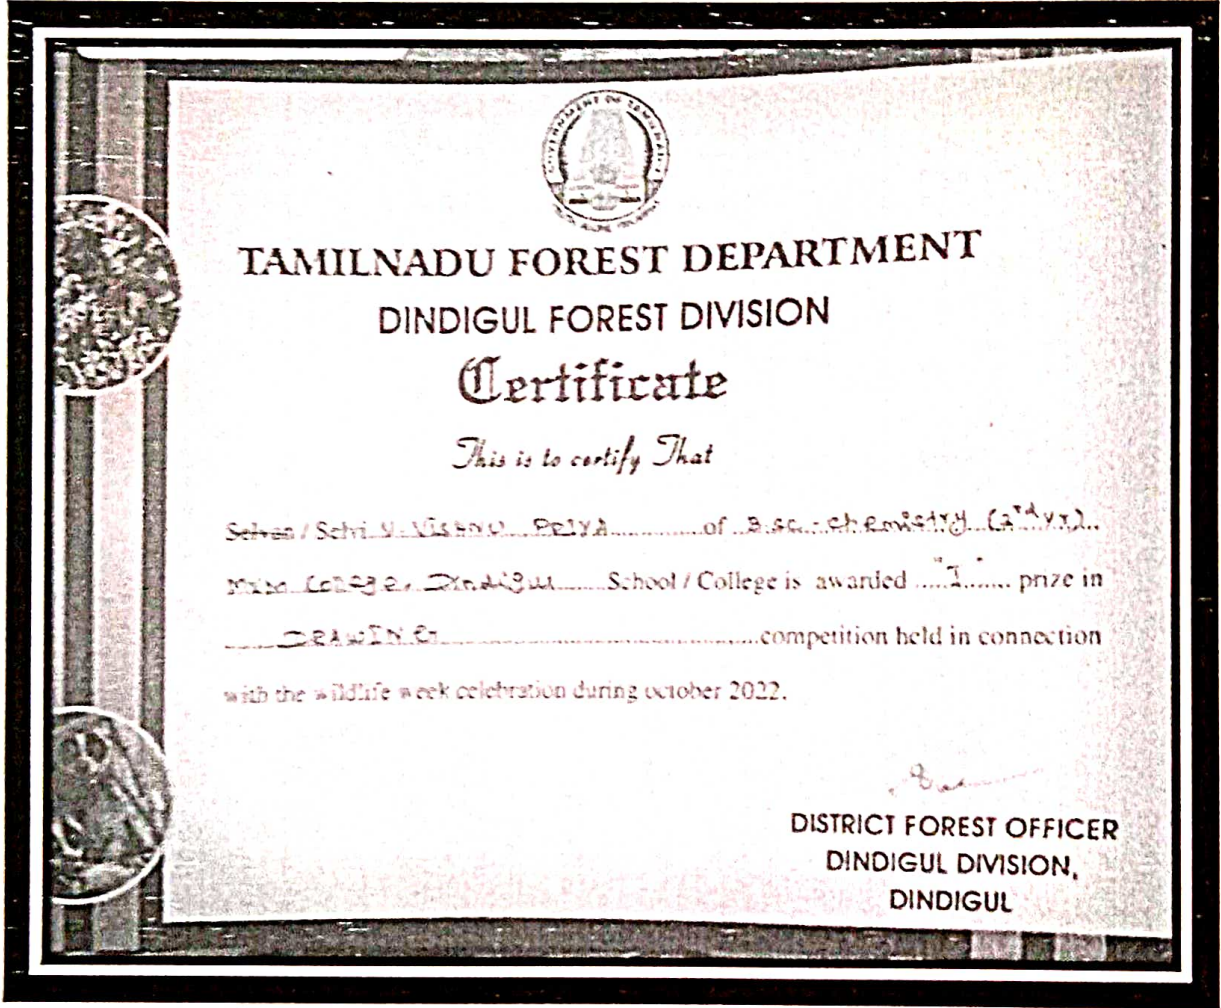 GOVERNMENT OF TAMILNADU
TAMILNADU FOREST DEPARTMENT
DINDIGUL FOREST DIVISION
Certificate
This is to certify That
Selvan / Selvi V. VISHNU PRIYA of B.sc.-chemistry (2nd yr)
College, Dindigul School / College is awarded "I" prize in
DRAWING competition held in connection
with the wildlife week celebration during october 2022.
DISTRICT FOREST OFFICER
DINDIGUL DIVISION,
DINDIGUL